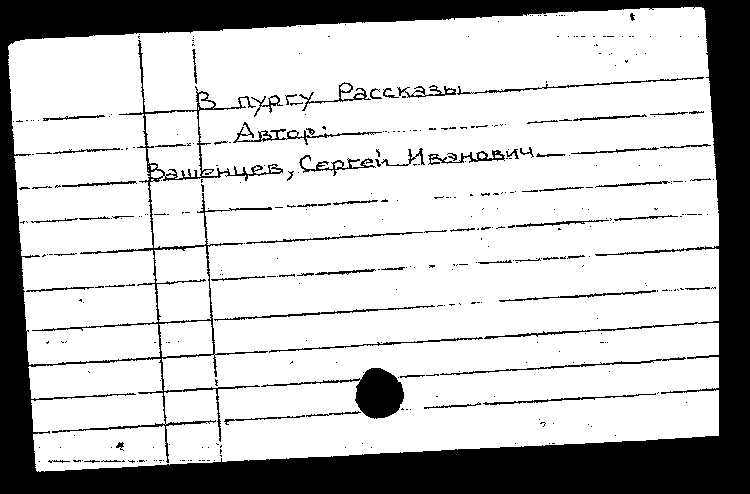 В пургу Рассказы
Автор:
Вашенцев, Сергей Иванович